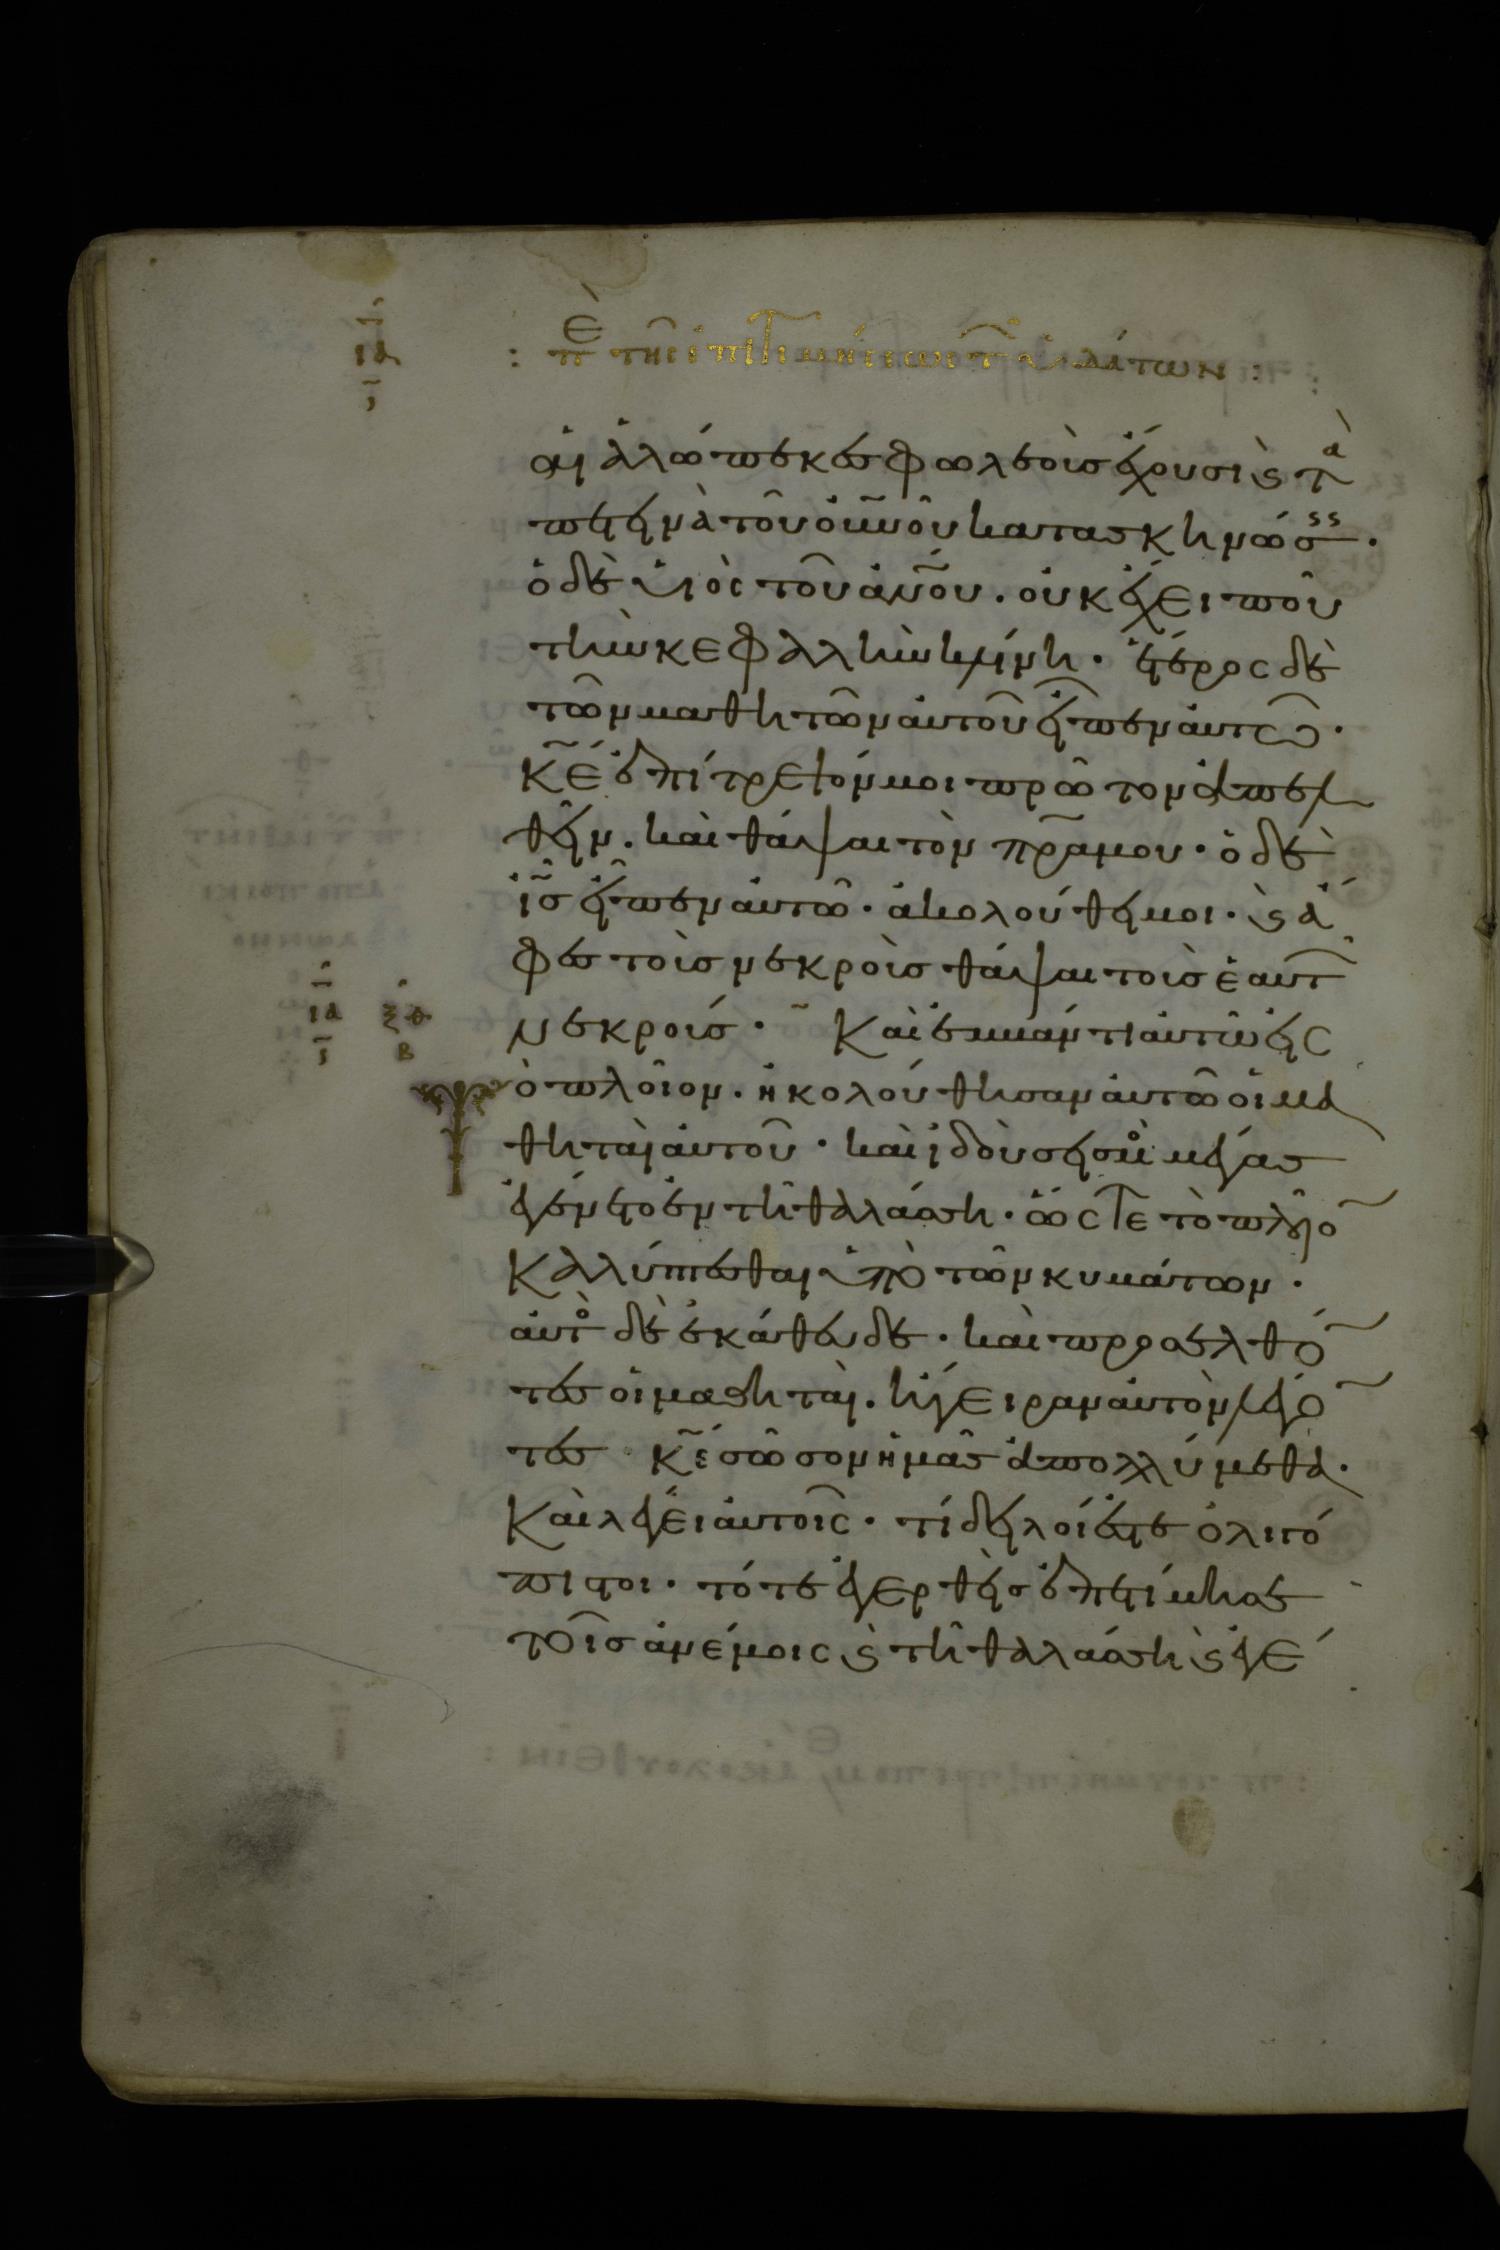 ιδ
: Ε π τῆς ἐπιτιμήσεως τ ὑδάτων :
αἱ ἀλώπεκες φωλεοὺς ἔχουσι ϗ τὰ
πετεινὰ τοῦ οὐνοῦ κατασκηνώσς ·
ὁ δὲ υἱὸς τοῦ ἀνου · οὐκ ἔχει ποῦ
τὴν κεφαλὴν κλίνη · ἕτερος δὲ
τῶν μαθητῶν αὐτοῦ εἶπεν αὐτῶ ·
κε ἐπίτρεψόν μοι πρῶτον ἀπελ
θεῖν · καὶ θάψαι τὸν πρα μου · ὁ δὲ
ις εἶπεν αὐτῶ · ἀκολούθει μοι · ϗ ἄ
φες τοὺς νεκροὺς θάψαι τοὺς ἑαυτ
νεκρούς · Καὶ ἐμβάντι αὐτῶ εἰς
τὸ πλοῖον · ἠκολούθησαν αὐτῶ οἱ μα
θηταὶ αὐτοῦ · καὶ ἰδοὺ σεισμὸς μέγας
ἐγένετο ἐν τῆ θαλάσση · ὥστε τὸ πλοῖο
καλύπτεσθαι ὑπὸ τῶν κυμάτων ·
αὐτὸς δὲ ἐκάθευδε · καὶ προσελθό
τες οἱ μαθηταὶ · ἤγειραν αὐτὸν λέγο
τες κε σῶσον ἡμᾶς ἀπολλύμεθα ·
καὶ λέγει αὐτοῖς · τί δειλοί ἐστε ὀλιγό
πιστοι · τότε ἐγερθεὶς ἐπετίμησε
τοῖς ἀνέμοις ϗ τῆ θαλάσση ϗ ἐγέ
ιδ ξθ
ϛ β